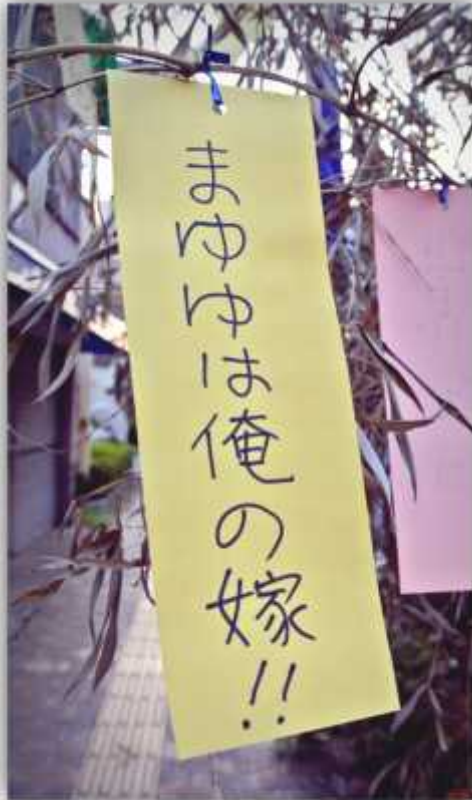 まゆゆは俺の嫁!!